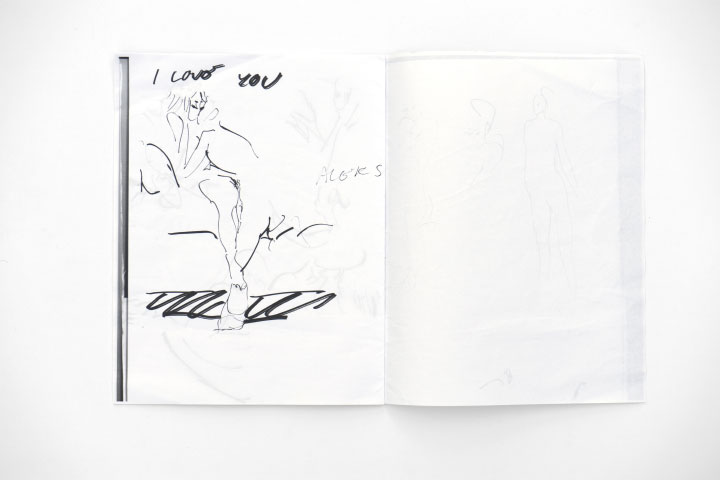 I LOVE YOU
ALEKS